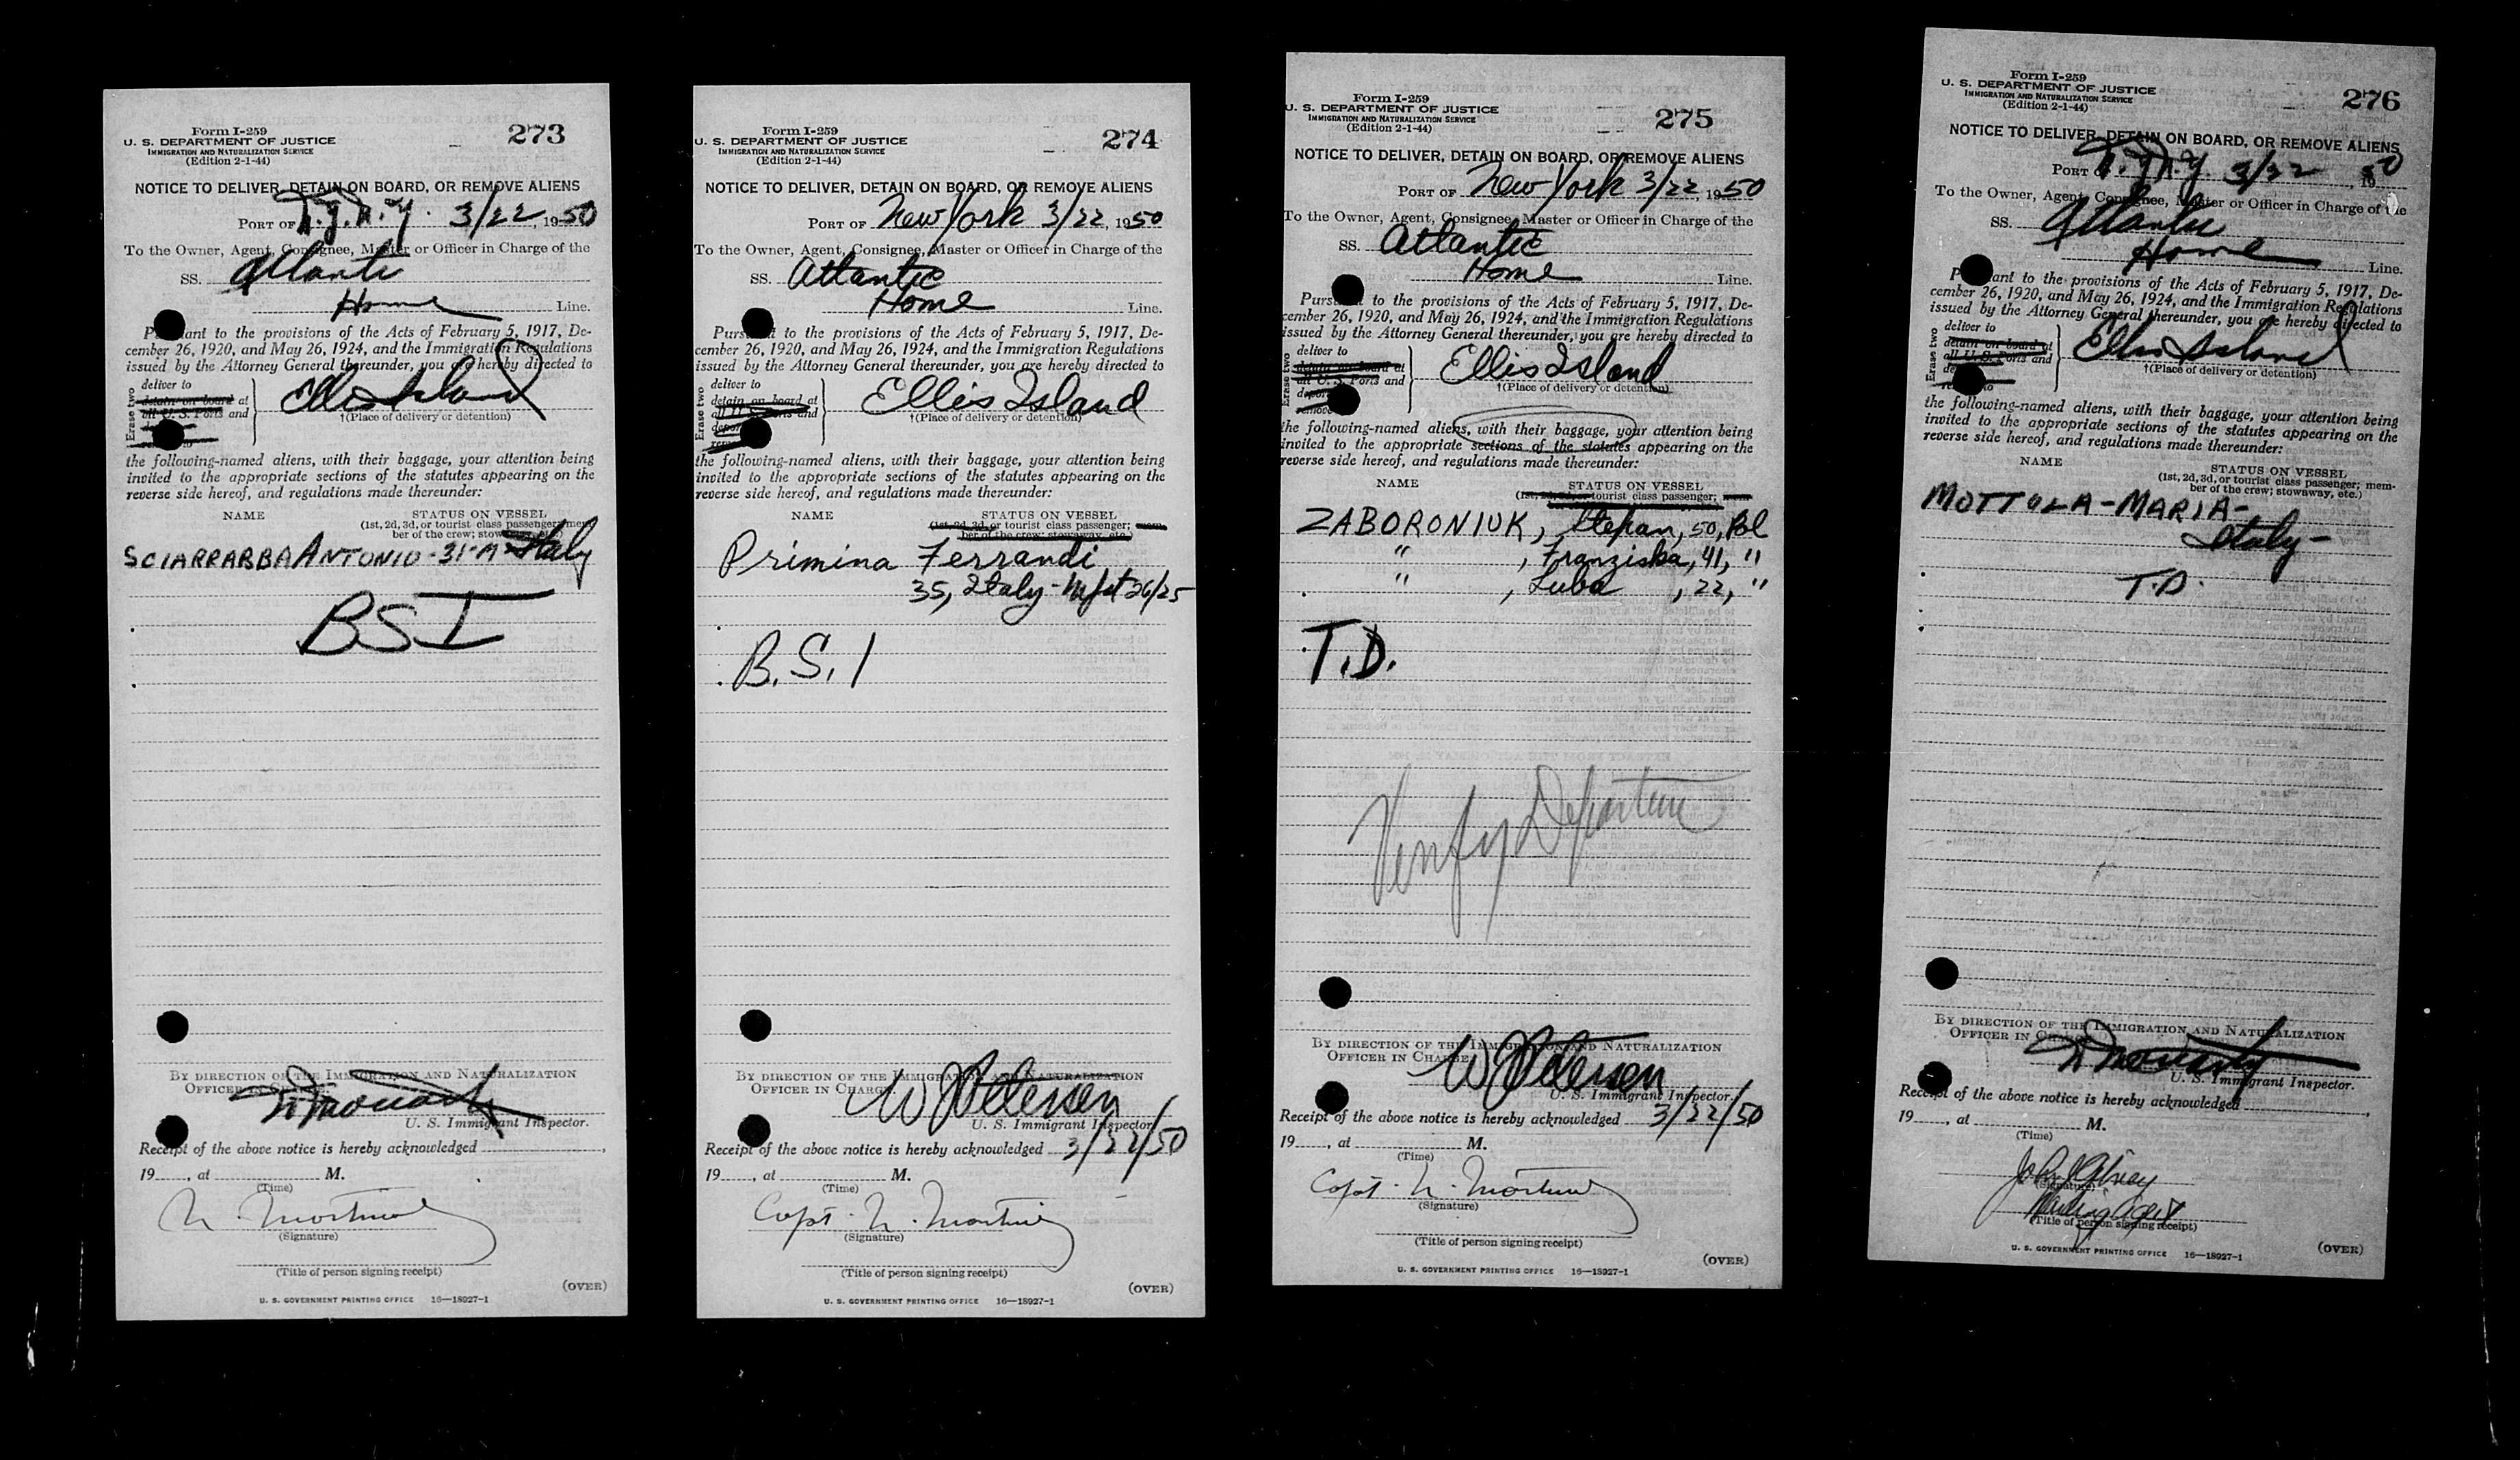 Form I-259
U. S. DEPARTMENT OF JUSTICE
IMMIGRATION AND NATURALIZATION SERVICE
(Edition 2-1-44)
273
NOTICE TO DELIVER, DETAIN ON BOARD, OR REMOVE ALIENS
PORT OF N.Y. N.Y. 3/22, 1950
To the Owner, Agent, Consignee, Master or Officer in Charge of the
SS. Atlantic
Home Line.
Pursuant to the provisions of the Acts of February 5, 1917, De-
cember 26, 1920, and May 26, 1924, and the Immigration Regulations
issued by the Attorney General thereunder, you are hereby directed to
Erase two
deliver to
detain on board at
all U. S. Ports and
Ellis Island
†(Place of delivery or detention)
the following-named aliens, with their baggage, your attention being
invited to the appropriate sections of the statutes appearing on the
reverse side hereof, and regulations made thereunder:
NAME STATUS ON VESSEL
(1st, 2d, 3d, or tourist class passenger; mem-
ber of the crew; stowaway, etc.)
SCIARRABBA ANTONIO - 31-M- Italy
BSI
BY DIRECTION OF THE IMMIGRATION AND NATURALIZATION
OFFICER IN CHARGE
U. S. Immigrant Inspector.
Receipt of the above notice is hereby acknowledged
19, at M.
(Time)
(Signature)
(Title of person signing receipt)
(OVER)
U. S. GOVERNMENT PRINTING OFFICE 16—18927-1
Form I-259
U. S. DEPARTMENT OF JUSTICE
IMMIGRATION AND NATURALIZATION SERVICE
(Edition 2-1-44)
274
NOTICE TO DELIVER, DETAIN ON BOARD, OR REMOVE ALIENS
PORT OF New York 3/22, 1950
To the Owner, Agent, Consignee, Master or Officer in Charge of the
SS. Atlantic
Home Line.
Pursuant to the provisions of the Acts of February 5, 1917, De-
cember 26, 1920, and May 26, 1924, and the Immigration Regulations
issued by the Attorney General thereunder, you are hereby directed to
Erase two
deliver to
detain on board at
all U. S. Ports and
Ellis Island
†(Place of delivery or detention)
the following-named aliens, with their baggage, your attention being
invited to the appropriate sections of the statutes appearing on the
reverse side hereof, and regulations made thereunder:
NAME STATUS ON VESSEL
(1st, 2d, 3d, or tourist class passenger; mem-
ber of the crew; stowaway, etc.)
Primina Ferrandi
35, Italy - Mfst 26/25
B.S.I
BY DIRECTION OF THE IMMIGRATION AND NATURALIZATION
OFFICER IN CHARGE
W Petersen
U. S. Immigrant Inspector
Receipt of the above notice is hereby acknowledged 3/22/50
19, at M.
(Time)
Capt. N.
(Signature)
(Title of person signing receipt)
(OVER)
U. S. GOVERNMENT PRINTING OFFICE 16—18927-1
Form I-259
U. S. DEPARTMENT OF JUSTICE
IMMIGRATION AND NATURALIZATION SERVICE
(Edition 2-1-44)
275
NOTICE TO DELIVER, DETAIN ON BOARD, OR REMOVE ALIENS
PORT OF New York 3/22, 1950
To the Owner, Agent, Consignee, Master or Officer in Charge of the
SS. Atlantic
Home Line.
Pursuant to the provisions of the Acts of February 5, 1917, De-
cember 26, 1920, and May 26, 1924, and the Immigration Regulations
issued by the Attorney General thereunder, you are hereby directed to
Erase two
deliver to
detain on board at
all U. S. Ports and
Ellis Island
†(Place of delivery or detention)
the following-named aliens, with their baggage, your attention being
invited to the appropriate sections of the statutes appearing on the
reverse side hereof, and regulations made thereunder:
NAME STATUS ON VESSEL
(1st, 2d, 3d, or tourist class passenger; mem-
ZABORONIUK, Stepan, 50, Pol
" , Franziska, 41, "
" , Luba , 22, "
T.D.
Verify Departure
BY DIRECTION OF THE IMMIGRATION AND NATURALIZATION
OFFICER IN CHARGE
W Petersen
U. S. Immigrant Inspector.
Receipt of the above notice is hereby acknowledged 3/22/50
19, at M.
(Time)
Capt. N.
(Signature)
(Title of person signing receipt)
(OVER)
U. S. GOVERNMENT PRINTING OFFICE 16—18927-1
Form I-259
U. S. DEPARTMENT OF JUSTICE
IMMIGRATION AND NATURALIZATION SERVICE
(Edition 2-1-44)
276
NOTICE TO DELIVER, DETAIN ON BOARD, OR REMOVE ALIENS
PORT OF N.Y. N.Y. 3/22, 1950
To the Owner, Agent, Consignee, Master or Officer in Charge of the
SS. Atlantic
Home Line.
Pursuant to the provisions of the Acts of February 5, 1917, De-
cember 26, 1920, and May 26, 1924, and the Immigration Regulations
issued by the Attorney General thereunder, you are hereby directed to
Erase two
deliver to
detain on board at
all U. S. Ports and
Ellis Island
†(Place of delivery or detention)
the following-named aliens, with their baggage, your attention being
invited to the appropriate sections of the statutes appearing on the
reverse side hereof, and regulations made thereunder:
NAME STATUS ON VESSEL
(1st, 2d, 3d, or tourist class passenger; mem-
ber of the crew; stowaway, etc.)
MOTTOLA - MARIA -
Italy -
T.D.
BY DIRECTION OF THE IMMIGRATION AND NATURALIZATION
OFFICER IN CHARGE
U. S. Immigrant Inspector.
Receipt of the above notice is hereby acknowledged
19, at M.
(Time)
(Signature)
(Title of person signing receipt)
U. S. GOVERNMENT PRINTING OFFICE 16—18927-1
(OVER)